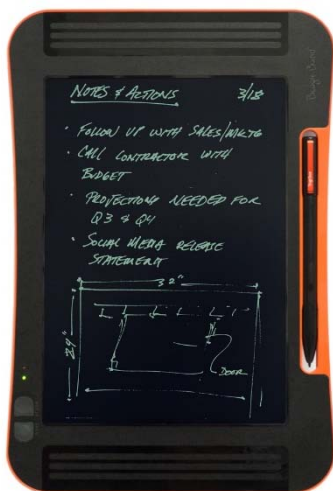 NOTES & ACTIONS 3/18
• FOLLOW UP WITH SALES/MKTG
• CALL CONTRACTOR WITH
BUDGET
• PROJECTIONS NEEDED FOR
Q3 & Q4
• SOCIAL MEDIA RELEASE
STATEMENT
32"
24"
DOOR